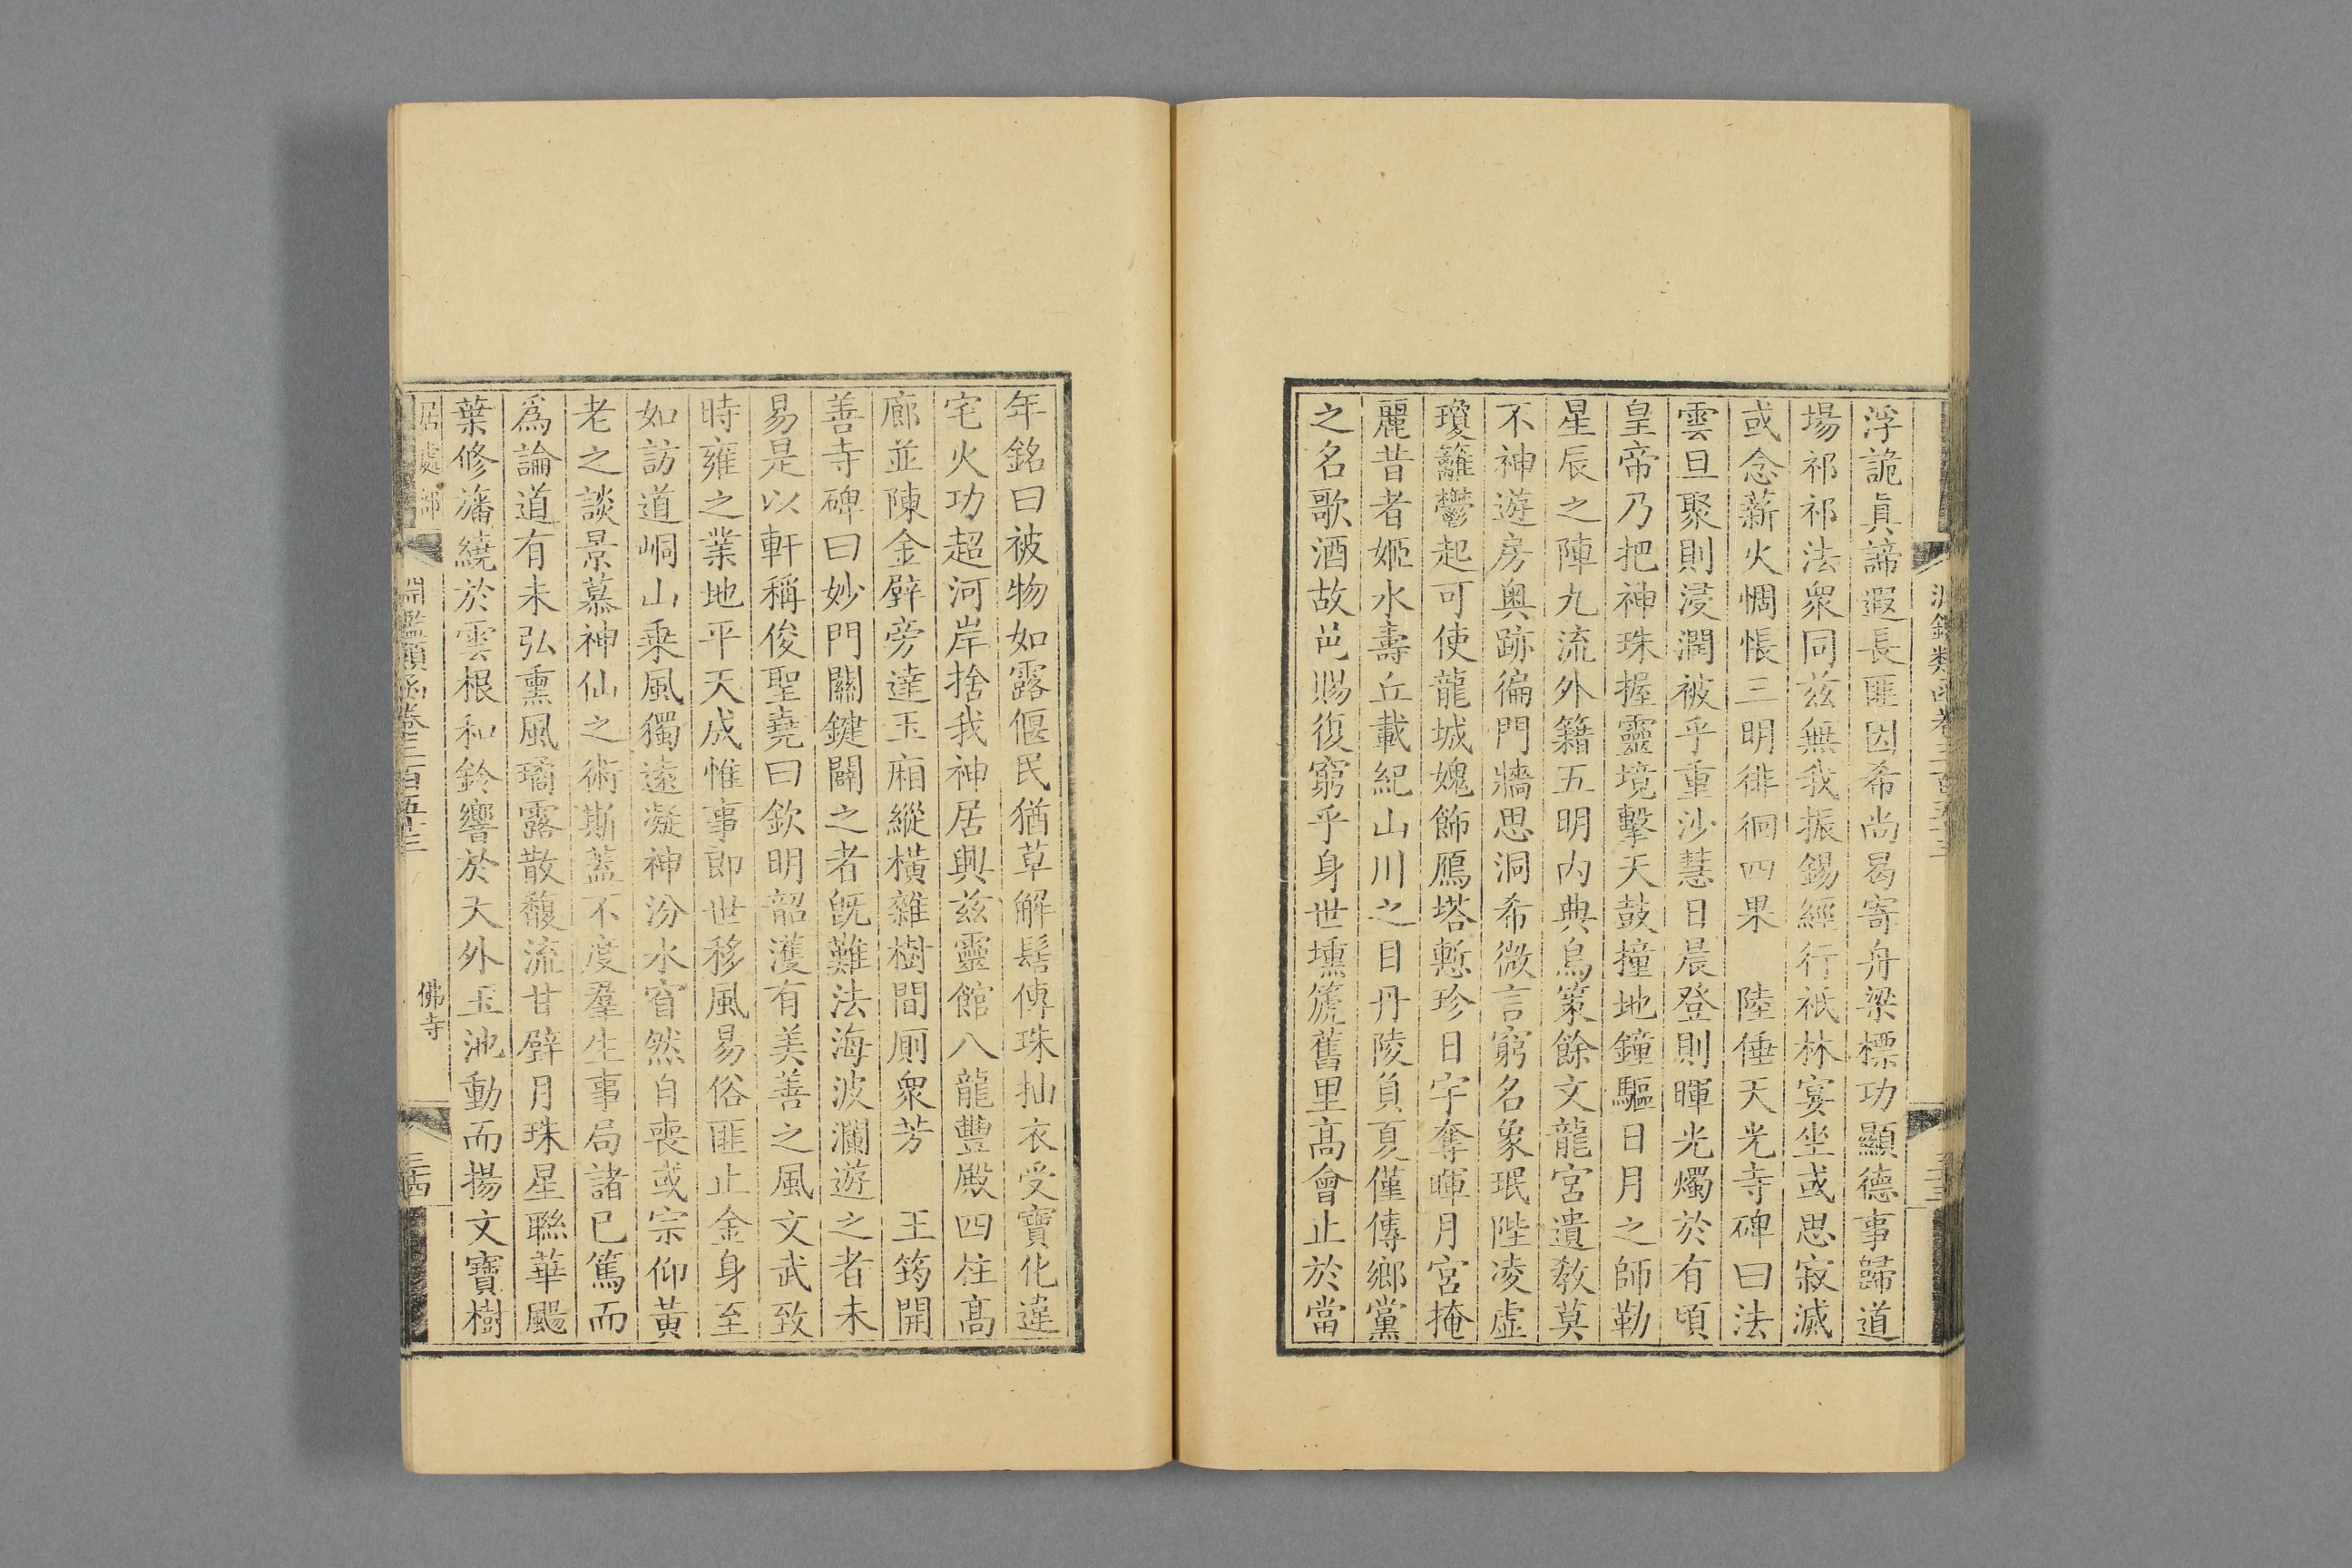 浮詭眞諦遐長匪因希尚曷寄舟梁標功顯德事歸道
場祁祁法衆同兹無我振錫經行祇林宴坐或思寂滅
或念薪火惆悵三明徘徊四果　陸倕天光寺碑曰法
雲旦聚則浸潤被乎重沙慧日晨登則暉光燭於有頃
皇帝乃把神珠握靈境擊天鼓撞地鐘驅日月之師勒
星辰之陣九流外籍五明内典烏策餘文龍宮遺敎莫
不神遊房奥跡徧門牆思洞希微言窮名象珉陛凌虚
瓊籬鬱起可使龍城媿飾鴈塔慙珍日宇奪暉月宮掩
麗昔者姬水壽丘載紀山川之目丹陵負夏僅傳鄉黨
之名歌酒故邑賜復窮乎身世壎篪舊里髙會止於當
年銘曰被物如露偃民猶草解髻傳珠抛衣受寶化違
宅火功超河岸捨我神居興兹靈館八龍豐殿四柱髙
廊並陳金壁旁達玉廂縱橫雜樹間厠衆芳　王筠開
善寺碑曰妙門關鍵闢之者旣難法海波瀾遊之者未
易是以軒稱俊聖堯曰欽明韶濩有美善之風文武致
時雍之業地平天成惟事卽世移風易俗匪止金身至
如訪道峒山乘風獨遠凝神汾水窅然自喪或宗仰黃
老之談景慕神仙之術斯蓋不度羣生事局諸已篤而
爲論道有未弘熏風璚露散馥流甘壁月珠星聯華颺
葉修簷繞於雲根和鈴響於天外玉池動而揚文寶樹
居處部
淵鑑類函卷三百五十三
佛寺
三四